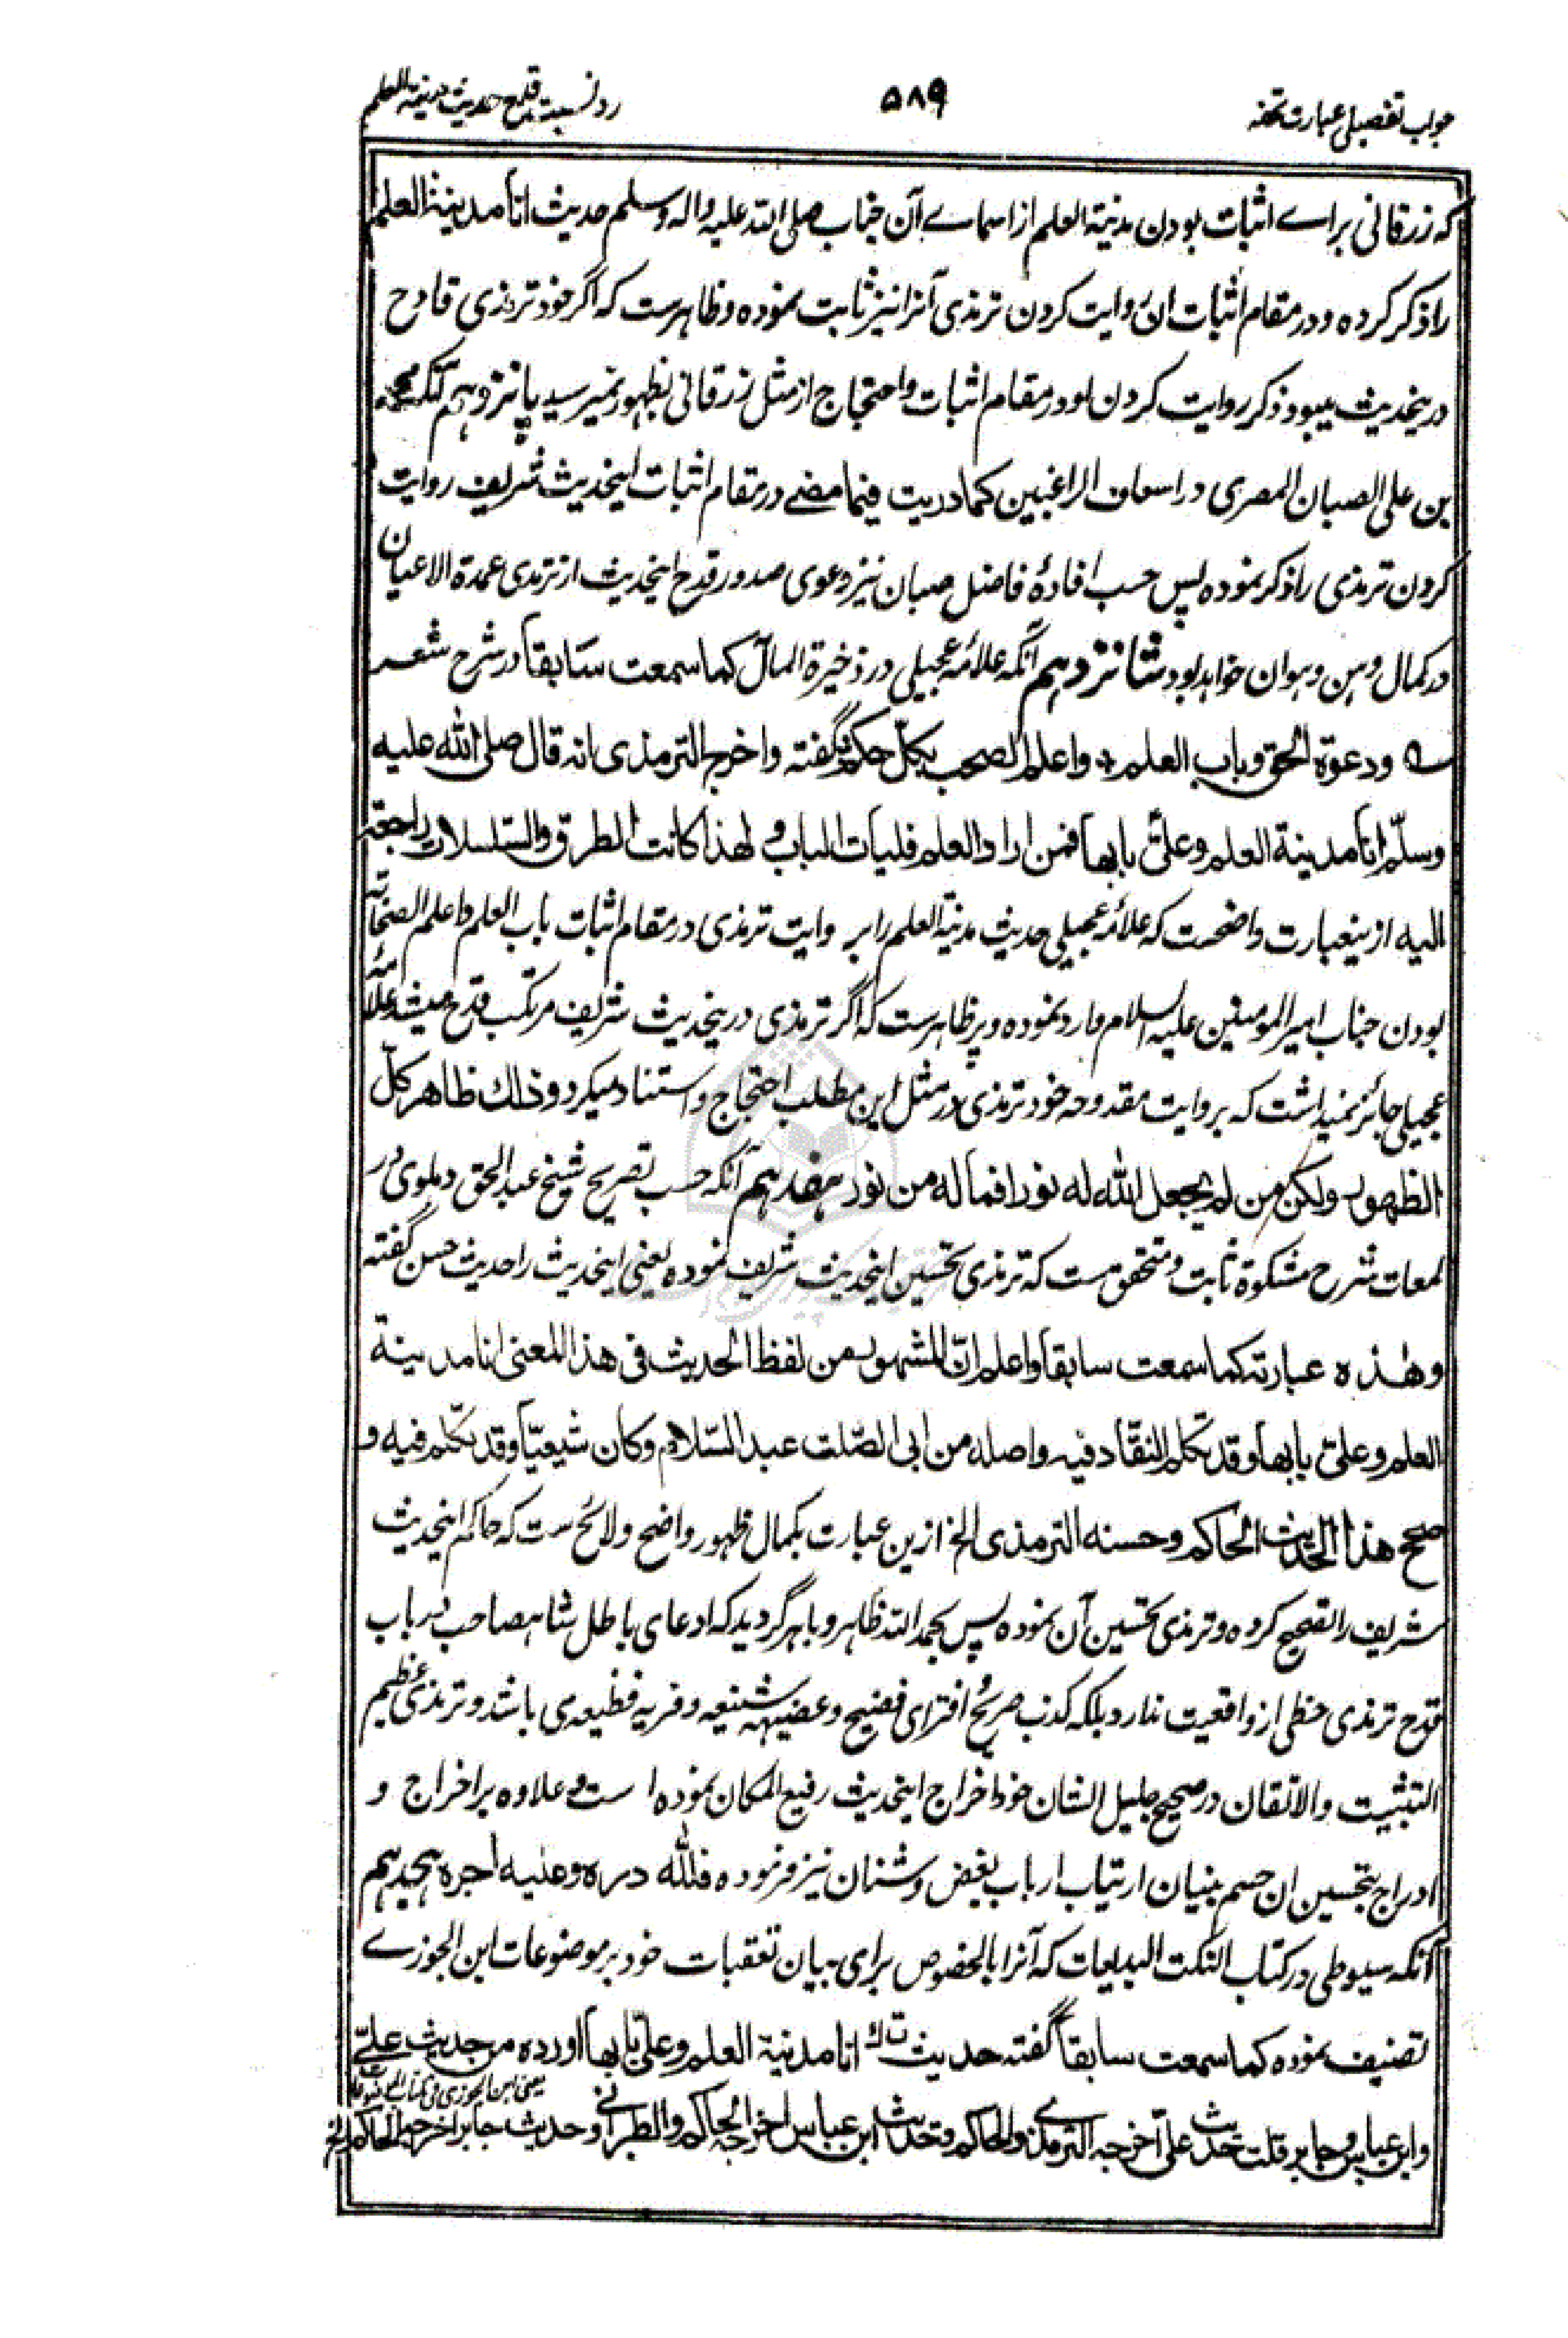 جواب تفصیلی عبارت تحفه
۵۸۹
رد نسبت قدح حدیث مدینة العلم
که زرقانی براے اثبات بودن مدینة العلم از اسماے آن جناب صلی الله علیه واله وسلم حدیث انا مدینة العلم
را ذکر کرده و در مقام اثبات ان روایت کردن ترمذی آنرا نیز ثابت نموده و ظاهرست که اگر خود ترمذی قادح
درینحدیث میبود ذکر روایت کردن او در مقام اثبات و احتجاج از مثل زرقانی بظهور نمیرسید پانزدهم آنکه محمد
بن علی الصبان المصری در اسعاف الراغبین کما دریت فیما مضے در مقام اثبات اینحدیث شریف روایت
کردن ترمذی را ذکر نموده پس حسب افادۀ فاضل صبان نیز دعوی صدور قدح اینحدیث از ترمذی عمدة الاعیان
در کمال وهن و هوان خواهد بود شانزدهم آنکه علامه عجیلی در ذخیرة المآل کما سمعت سابقا در شرح شعر
ودعوة الحق وباب العلم * واعلم الصحب بکل حکم گفته واخرج الترمذی انه قال صلی الله علیه
وسلّم انا مدینة العلم وعلیّ بابها فمن اراد العلم فلیات الباب و لهذا کانت الطرق والسّلسلات راجعة
الیه ازینعبارت واضحست که علامه عجیلی حدیث مدینة العلم را بروایت ترمذی در مقام اثبات باب العلم و اعلم الصحابه
بودن جناب امیر المومنین علیه السلام وارد نموده و پر ظاهرست که اگر ترمذی درینحدیث شریف مرتکب قدح میشد علامۀ
عجیلی جائز نمیداشت که بروایت مقدوحه خود ترمذی در مثل این مطلب احتجاج و استناد میکرد وذلك ظاهر کلّ
الظهور ولکن من لم یجعل الله له نورا فما له من نور هفدهم آنکه حسب تصریح شیخ عبد الحق دهلوی در
لمعات شرح مشکوة ثابت و متحقق ست که ترمذی تحسین اینحدیث شریف نموده یعنی اینحدیث را حدیث حسن گفته
وهٰذه عبارته کما سمعت سابقا واعلم انّ المشهور من لفظ الحدیث فی هذا المعنی انا مدینة
العلم وعلیّ بابها وقد تکلم النقّاد فیه واصله من ابی الصّلت عبد السّلام وکان شیعیّا وقد تکلّم فیه و
صحح هذا الحدیث الحاکم وحسنه الترمذی الخ ازین عبارت بکمال ظهور واضح و لائح ست که حاکم اینحدیث
شریف را تصحیح کرده و ترمذی تحسین آن نموده پس بحمد الله ظاهر و باهر گردید که ادعای باطل شاهصاحب در باب
قدح ترمذی حظی از واقعیت ندارد بلکه کذب صریح و افترای فضیح و عضیهه شنیعه و فریه فظیعه می باشد و ترمذی عظیم
التثبت والاتقان در صحیح جلیل الشان خود اخراج اینحدیث رفیع المکان نموده است و علاوه بر اخراج و
ادراج بتحسین ان حسم بنیان ارتیاب ارباب بغض و شنان نیز فرموده فلله دره وعلیه اجره هیجدهم
آنکه سیوطی در کتاب النکت البدیعات که آنرا بالخصوص برای بیان تعقبات خود بر موضوعات ابن الجوزے
تصنیف نموده کما سمعت سابقا گفته حدیث ت ك انا مدینة العلم وعلیّ بابها اورده من حدیث علیّ
یعنی ابن الجوزی فی کتاب الموضوعات
وابن عباس وجابر قلت حدیث علیّ اخرجه الترمذی والحاکم وحدیث ابن عباس اخرجه الحاکم والطبرانی وحدیث جابر اخرجه الحاکم الخ